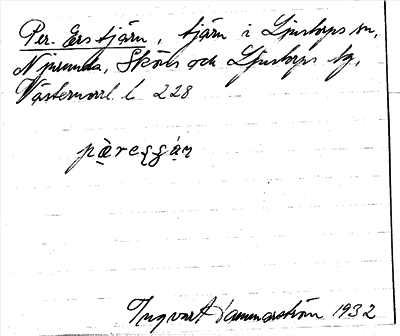 Per-Ers tjärn, tjärn i Ljustorps sn,
Njurunda, Sköns och Ljustorps tg,
Västernorrl. l. 228
Ingvart Hammarström 1932